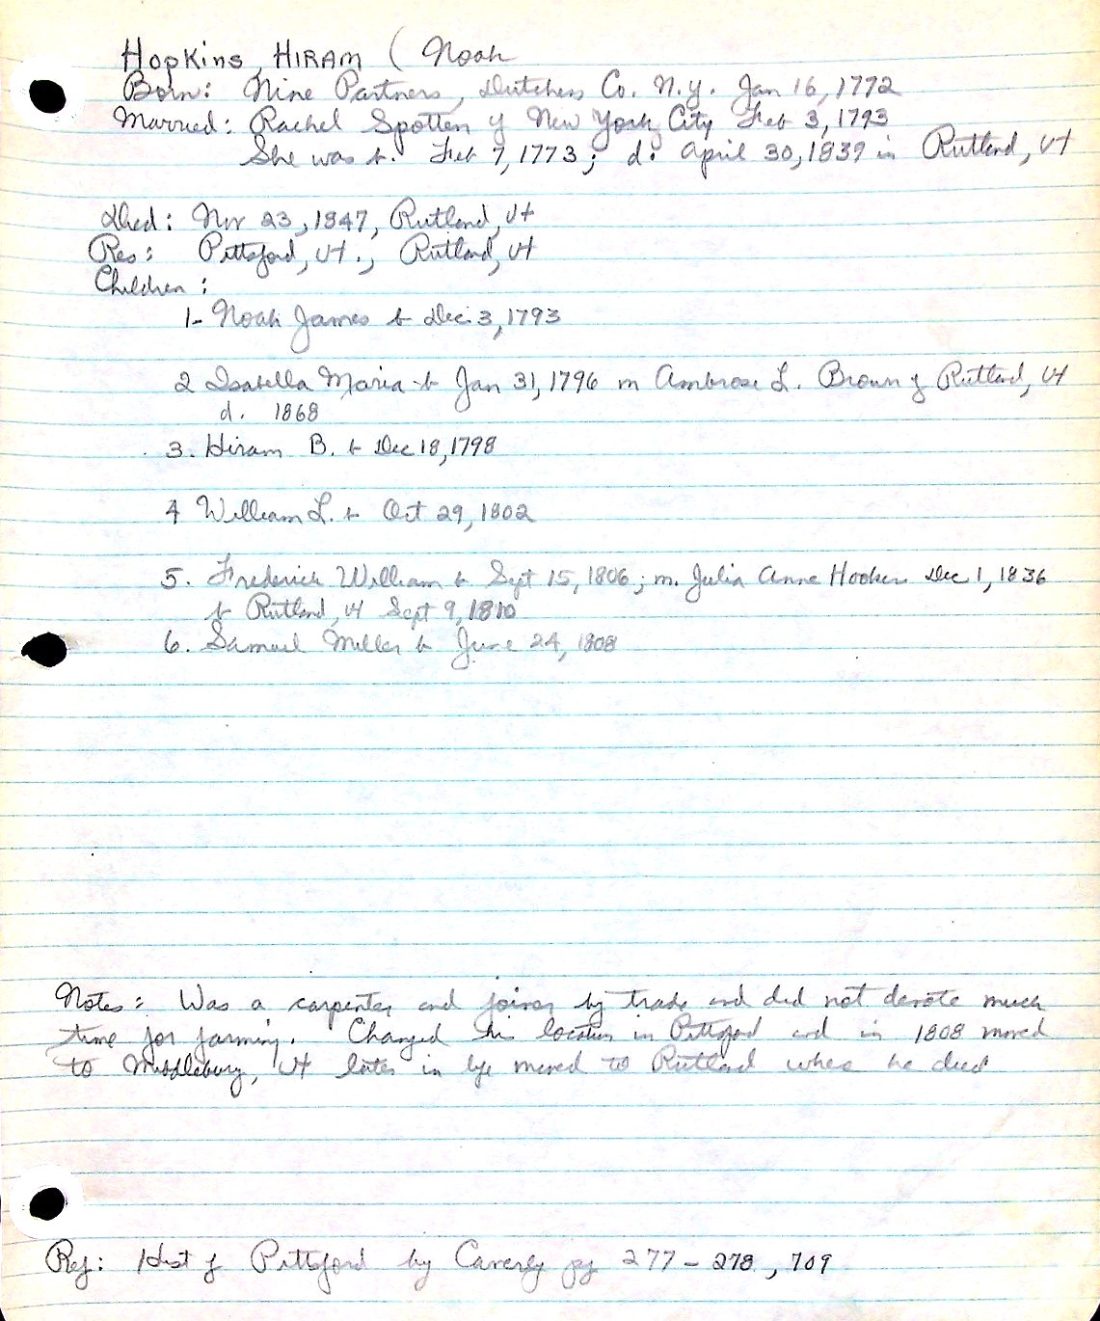 Hopkins, HIRAM ( Noah
Born: Nine Partners, Dutchess Co. N.Y. Jan 16, 1772
Married: Rachel Spotten of New York City Feb 3, 1793
She was b. Feb 7, 1773; d: April 30, 1839 in Rutland, Vt
Died: Nov 23, 1847, Rutland, Vt
Res: Pittsford, Vt., Rutland, Vt
Children:
1- Noah James b Dec. 3, 1793
2 Isabella Maria b Jan 31, 1796 m Ambrose L. Brown of Rutland, Vt
d. 1868
3. Hiram B. b Dec 18, 1798
4 William L. b Oct 29, 1802
5. Frederick William b Sept 15, 1806; m. Julia Anne Hooker Dec 1, 1836
b Rutland, Vt Sept 9, 1810
6. Samuel Miller b June 24, 1808
Notes: Was a carpenter and joiner by trade and did not devote much
time for farming. Changed his location in Pittsford and in 1808 moved
to Middlebury, Vt later in life moved to Rutland where he died
Ref: Hist of Pittsford by Caverly pg 277-278, 709